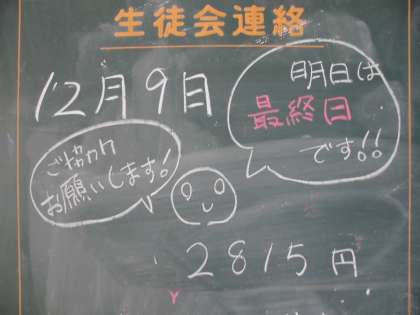 生徒会連絡
12月9日
明日は
最終日
です!!
ご協力
お願いします!
2815円
Y